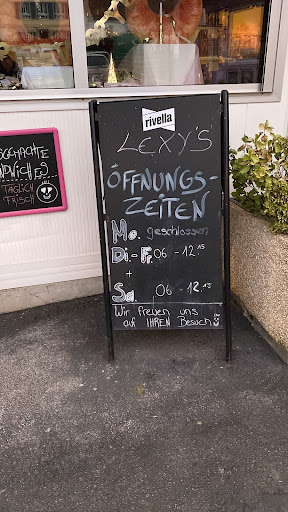 rivella
LEXY'S
ÖFFNUNGS-
ZEITEN
Mo. geschlossen
Di.- Fr. 06 - 12.15
+
Sa. 06 - 12.15
Wir freuen uns
auf IHREN Besuch
TÄGLICH
FRISCH